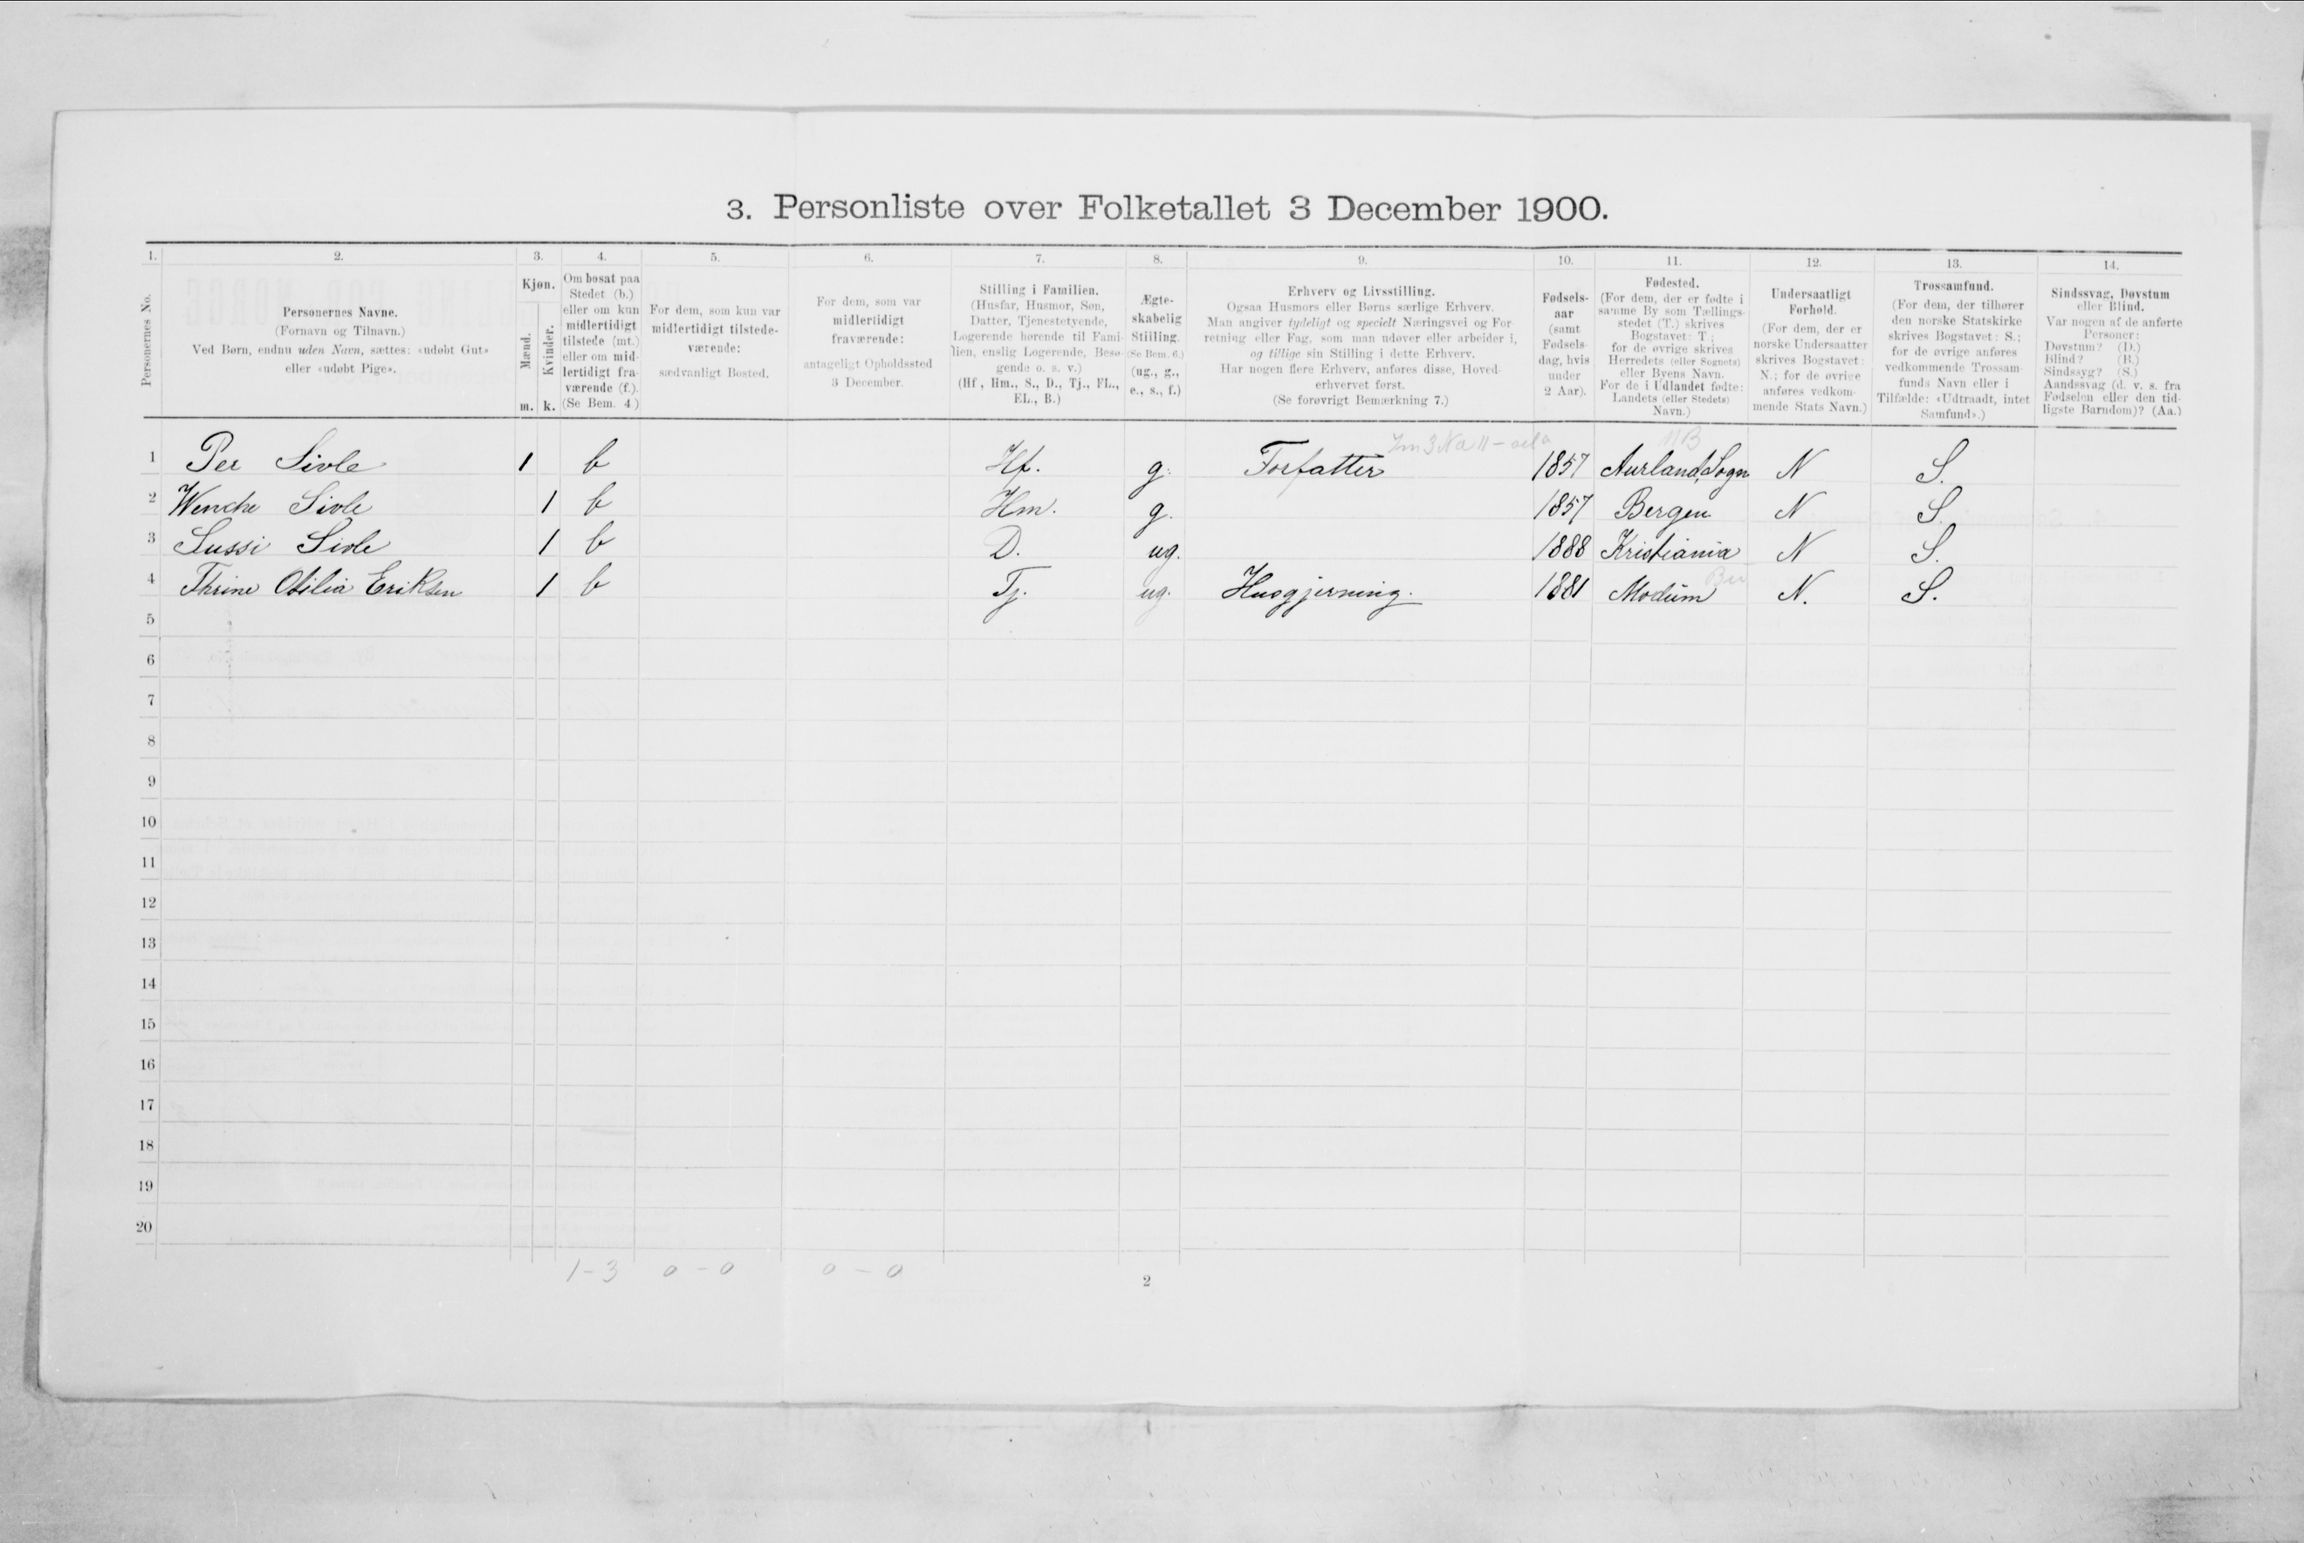 3. Personliste over Folketallet 3 December 1900.
1. 2. 3. 4. 5. 6. 7. 8. 9. 10. 11. 12. 13. 14.
Personernes No.
Personernes Navne.
(Fornavn og Tilnavn.)
Ved Børn, endnu uden Navn, sættes: «udøbt Gut»
eller «udøbt Pige».
Kjøn.
Mænd.
Kvinder.
m. k.
Om bosat paa
Stedet (b.)
eller om kun
midlertidigt
tilstede (mt.)
eller om mid-
lertidigt fra-
værende (f.).
(Se Bem. 4)
For dem, som kun var
midlertidigt tilstede-
værende:
sædvanligt Bosted.
For dem, som var
midlertidigt
fraværende:
antageligt Opholdssted
3 December.
Stilling i Familien.
(Husfar, Husmor, Søn,
Datter, Tjenestetyende,
Logerende hørende til Fami-
lien, enslig Logerende, Besø-
gende o. s. v.)
(Hf, Hm., S., D., Tj., FL.,
EL., B.)
Ægte-
skabelig
Stilling.
(Se Bem. 6.)
(ug., g.,
e., s., f.)
Erhverv og Livsstilling.
Ogsaa Husmors eller Børns særlige Erhverv.
Man angiver tydeligt og specielt Næringsvei og For-
retning eller Fag, som man udøver eller arbeider i,
og tillige sin Stilling i dette Erhverv.
Har nogen flere Erhverv, anføres disse, Hoved-
erhvervet først.
(Se forøvrigt Bemærkning 7.)
Fødsels-
aar
(samt
Fødsels-
dag, hvis
under
2 Aar).
Fødested.
(For dem, der er fødte i
samme By som Tællings-
stedet (T.) skrives
Bogstavet: T.;
for de øvrige skrives
Herredets (eller Sognets)
eller Byens Navn.
For de i Udlandet fødte:
Landets (eller Stedets)
Navn.)
Undersaatligt
Forhold.
(For dem, der er
norske Undersaatter
skrives Bogstavet:
N.; for de øvrige
anføres vedkom-
mende Stats Navn.)
Trossamfund.
(For dem, der tilhører
den norske Statskirke
skrives Bogstavet: S.;
for de øvrige anføres
vedkommende Trossam-
funds Navn eller i
Tilfælde: «Udtraadt, intet
Samfund».)
Sindssvag, Døvstum
eller Blind.
Var nogen af de anførte
Personer:
Døvstum? (D.)
Blind? (B.)
Sindssyg? (S.)
Aandssvag (d. v. s. fra
Fødselen eller den tid-
ligste Barndom)? (Aa.)
1 Per Sivle 1 b Hf. g. Forfatter 1857 Aurland, Sogn N S.
2 Wenche Sivle 1 b Hm. g. 1857 Bergen N S.
3 Sussi Sivle 1 b D. ug. 1888 Kristiania N S.
4 Thrine Otilia Eriksen 1 b Tj. ug. Husgjerning. 1881 Modum Bu N. S.
5
6
7
8
9
10
11
12
13
14
15
16
17
18
19
20
1-3 0-0 0-0
2